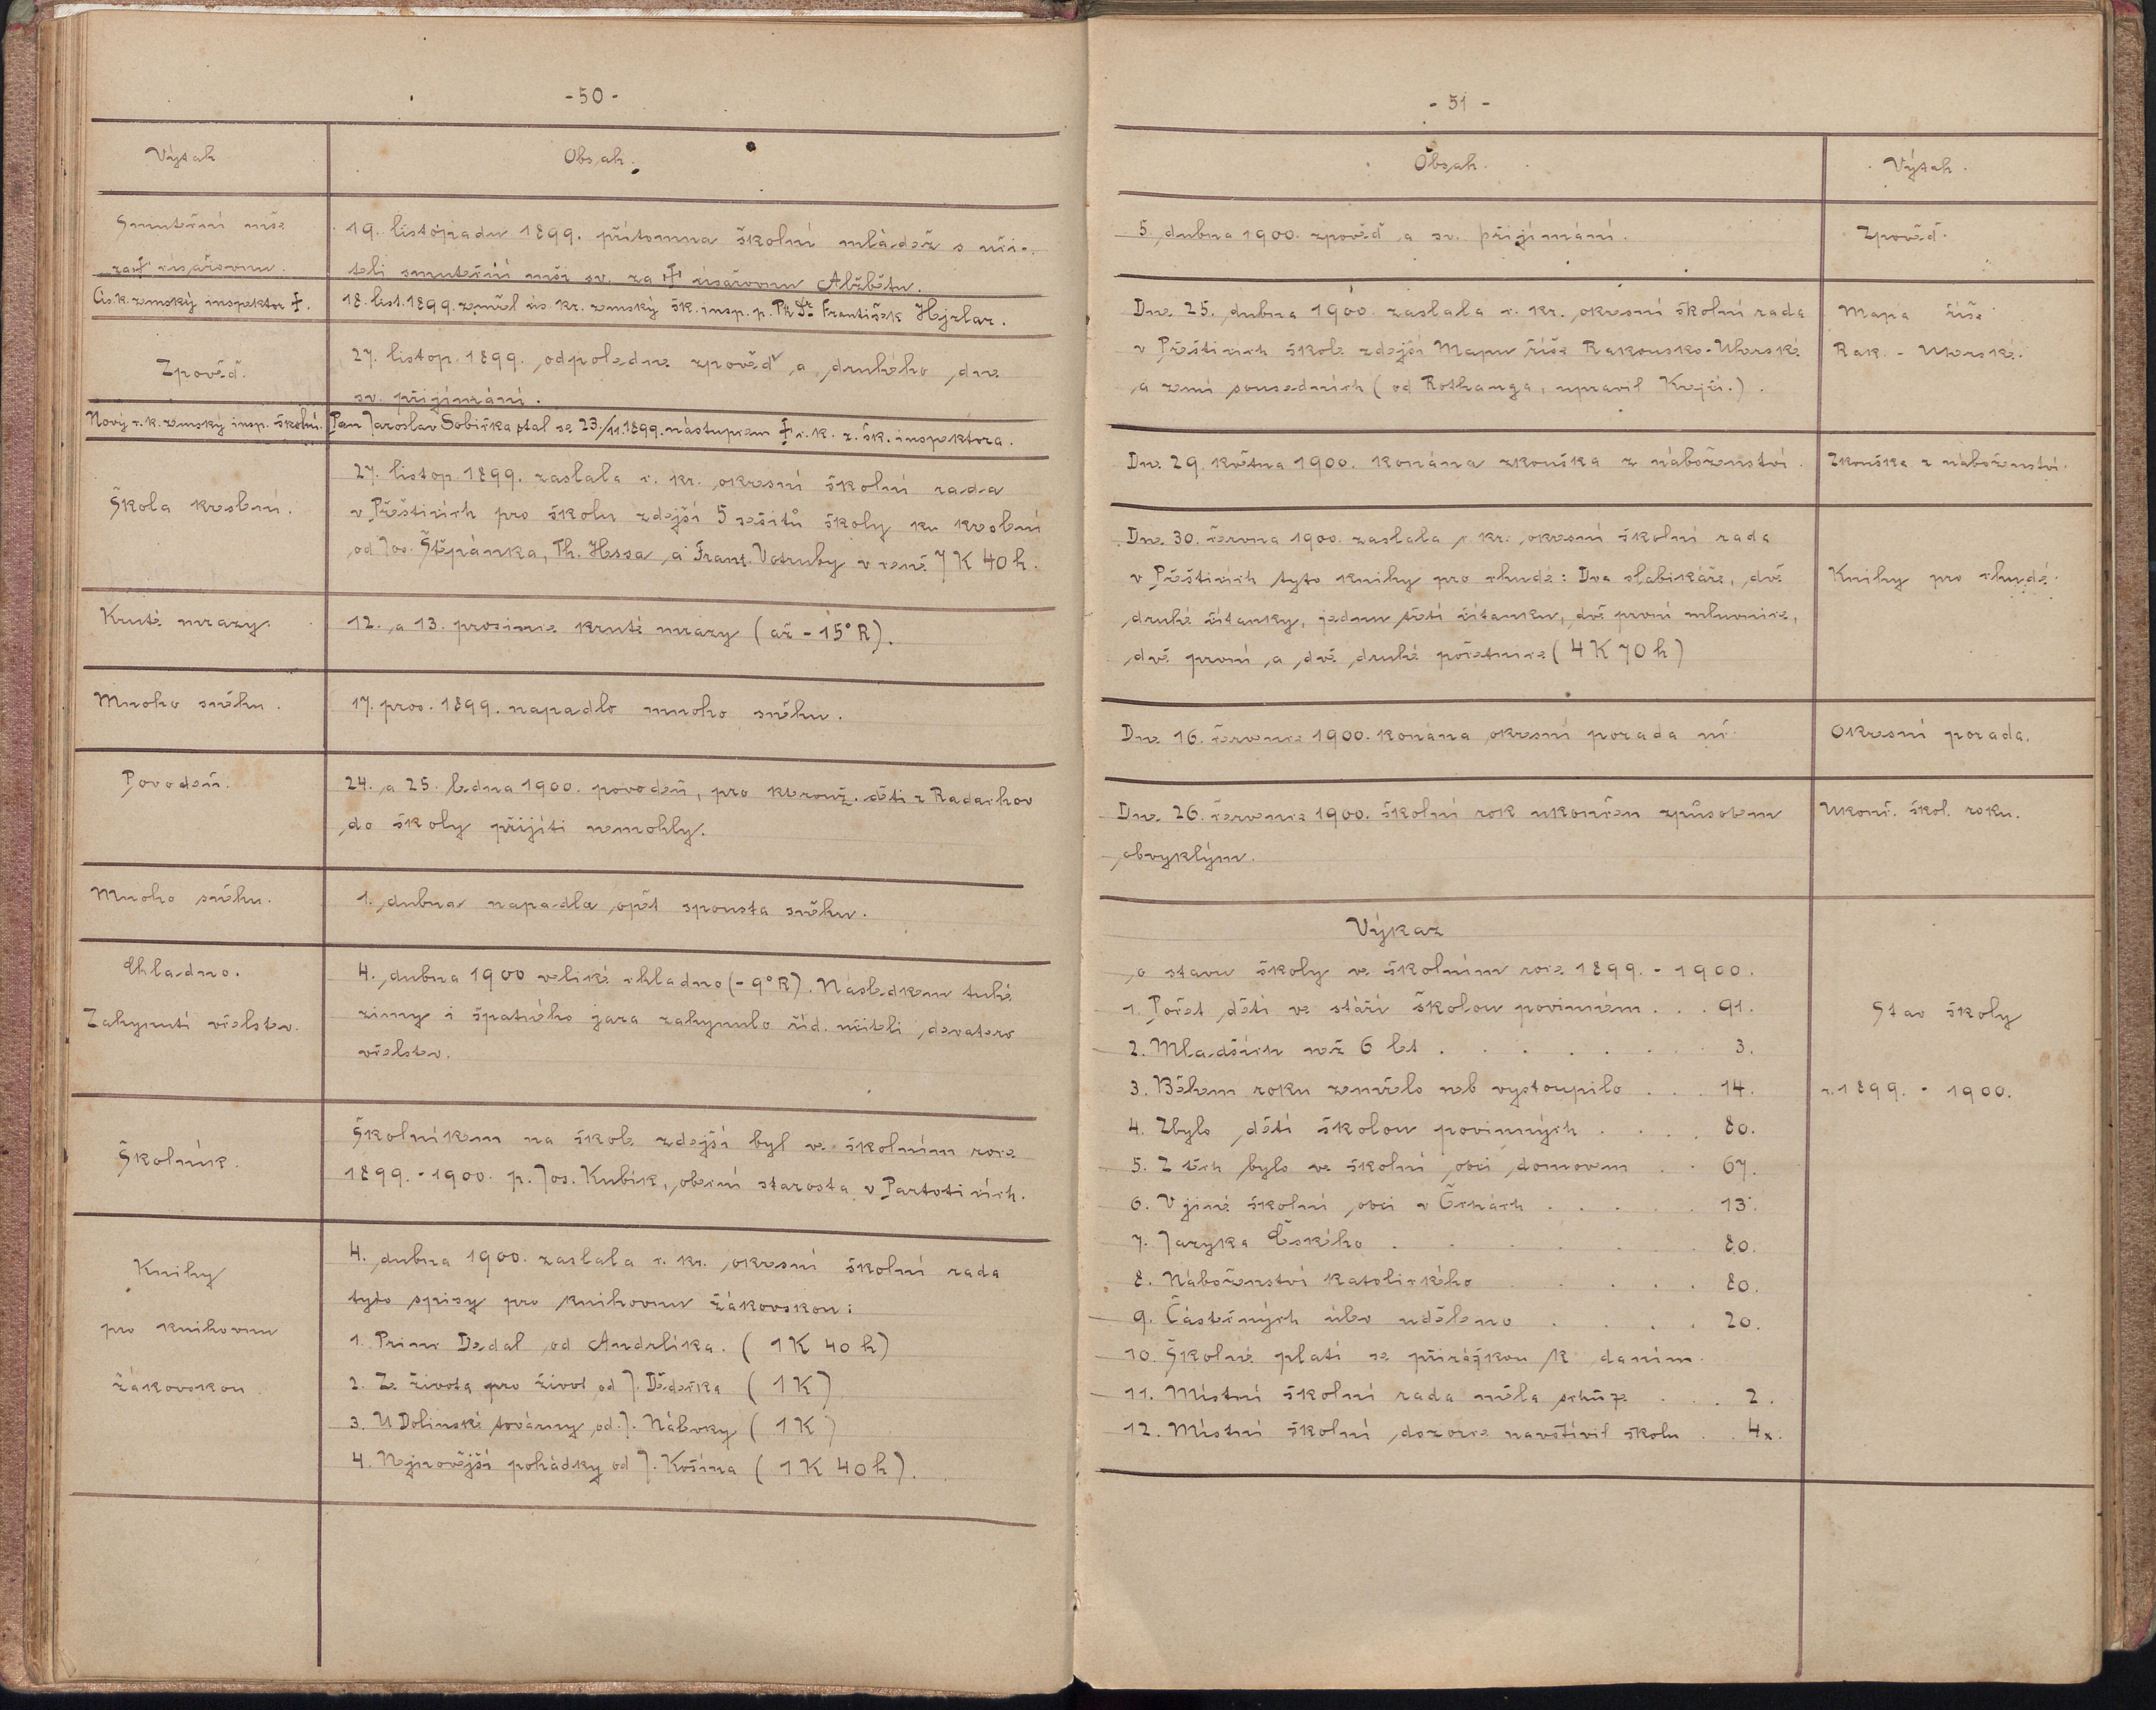 -50-
Výtah
Obsah.
Smuteční mše
19. listopadu 1899. přítomna školní mládež s uči-
za † císařovnu.
teli smuteční mši sv. za † císařovnu Alžbětu.
Cís. k. zemský inspektor †.
18. list. 1899. zemřel cís. kr. zemský šk. insp. p. Ph Dr. František Hejzlar.
Zpověď.
27. listop. 1899. odpoledne zpověď a druhého dne
sv. přijímání.
Nový c. k. zemský insp. školní.
Pan Jaroslav Sobička stal se 23./11. 1899. nástupcem † c. k. z. šk. inspektora.
27. listop. 1899. zaslala c. kr. okresní školní rada
Škola kreslení.
v Přešticích pro školu zdejší 5 sešitů školy ku kreslení
od Jos. Štěpánka, Th. Hessa a Frant. Votruby v ceně 7 K 40 h.
Kruté mrazy.
12. a 13. prosince kruté mrazy (až - 15° R).
Mnoho sněhu.
17. pros. 1899. napadlo mnoho sněhu.
Povodeň.
24. a 25. ledna 1900. povodeň, pro kterouž děti z Radachov
do školy přijíti nemohly.
Mnoho sněhu.
1. dubna napadla opět spousta sněhu.
Chladno.
4. dubna 1900 veliké chladno (- 9° R). Následkem tuhé
Zahynutí včelstev.
zimy i špatného jara zahynulo říd. učiteli devatero
včelstev.
Školníkem na škole zdejší byl ve školním roce
Školník.
1899. - 1900. p. Jos. Kubík, obecní starosta v Partoticích.
4. dubna 1900. zaslala c. kr. okresní školní rada
Knihy
tyto spisy pro knihovnu žákovskou:
pro knihovnu
1. Princ Dedal od Andrlíka. (1 K 40 h)
žákovskou.
2. Ze života pro život od J. Dědečka (1 K)
3. U Dolinské továrny od J. Nábvky (1 K)
4. Nejnovější pohádky od J. Košína (1 K 40 h).
- 51 -
Obsah.
Výtah.
5. dubna 1900. zpověď a sv. přijímání.
Zpověď.
Dne 25. dubna 1900. zaslala c. kr. okresní školní rada
Mapa říše
v Přešticích škole zdejší Mapu říše Rakousko-Uherské
Rak. - Uherské.
a zemí sousedních (od Rothauga, upravil Krejčí.).
Dne 29. května 1900. konána zkouška z náboženství.
Zkouška z náboženství.
Dne 30. června 1900. zaslala c. kr. okresní školní rada
v Přešticích tyto knihy pro chudé: Dva slabikáře, dvě
Knihy pro chudé.
druhé čítanky, jednu třetí čítanku, dvě první mluvnice,
dvě první a dvě druhé početnice (4 K 70 h)
Dne 16. července 1900. konána okresní porada uč.
Okresní porada.
Dne 26. července 1900. školní rok ukončen způsobem
Ukonč. škol. roku.
obvyklým.
Výkaz
o stavu školy ve školním roce 1899. - 1900.
1. Počet dětí ve stáří školou povinném . . . 91.
Stav školy
2. Mladších než 6 let . . . . . . 3.
3. Během roku zemřelo neb vystoupilo . . . 14.
r. 1899. - 1900.
4. Zbylo dětí školou povinných . . . . 80.
5. Z těch bylo ve školní obci domovem . . 67.
6. V jiné školní obci v Čechách . . . . . 13.
7. Jazyka Českého . . . . . . 80.
8. Náboženství katolického . . . . . 80.
9. Částečných úlev uděleno . . . . 20.
10. Školné platí se přirážkou k daním.
11. Místní školní rada měla schůze . . . 2.
12. Místní školní dozorce navštívil školu . . 4x.